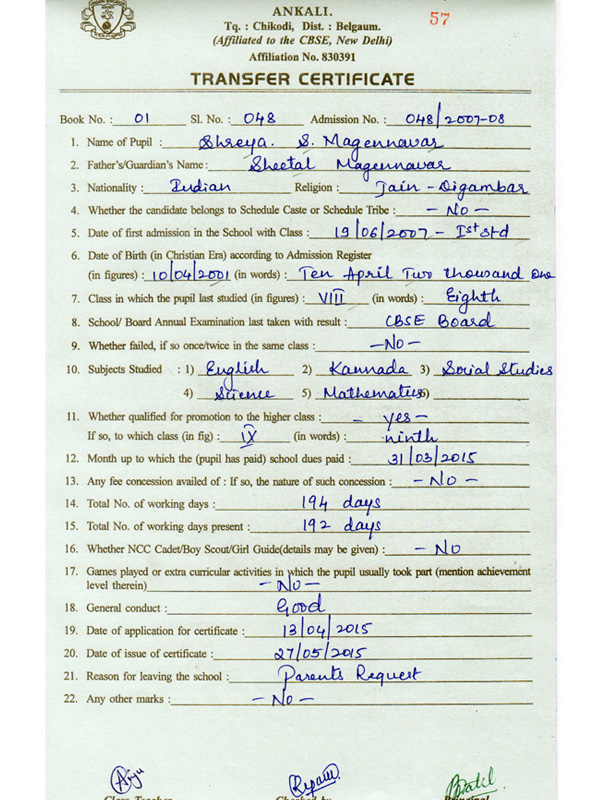 ANKALI.
57
Tq. : Chikodi, Dist. : Belgaum.
(Affiliated to the CBSE, New Delhi)
Affiliation No. 830391
TRANSFER CERTIFICATE
Book No. : 01 Sl. No. : 048 Admission No. : 048/2007-08
1. Name of Pupil : Shreya. S. Magennavar
2. Father's/Guardian's Name : Sheetal Magennavar
3. Nationality : Indian Religion : Jain - Digambar
4. Whether the candidate belongs to Schedule Caste or Schedule Tribe : - No -
5. Date of first admission in the School with Class : 19/06/2007 - Ist std
6. Date of Birth (in Christian Era) according to Admission Register
(in figures) : 10/04/2001 (in words) : Ten April Two thousand one
7. Class in which the pupil last studied (in figures) : VIII (in words) : Eighth
8. School/ Board Annual Examination last taken with result : CBSE Board
9. Whether failed, if so once/twice in the same class : -No-
10. Subjects Studied : 1) English 2) Kannada 3) Social Studies
4) Science 5) Mathematics 6)
11. Whether qualified for promotion to the higher class : - yes -
If so, to which class (in fig) : IX (in words) : ninth
12. Month up to which the (pupil has paid) school dues paid : 31/03/2015
13. Any fee concession availed of : If so, the nature of such concession : - No -
14. Total No. of working days : 194 days
15. Total No. of working days present : 192 days
16. Whether NCC Cadet/Boy Scout/Girl Guide(details may be given) : - No
17. Games played or extra curricular activities in which the pupil usually took part (mention achievement
level therein) - No -
18. General conduct : Good
19. Date of application for certificate : 13/04/2015
20. Date of issue of certificate : 27/05/2015
21. Reason for leaving the school : Parents Request
22. Any other marks : - No -
Class Teacher Checked by Principal